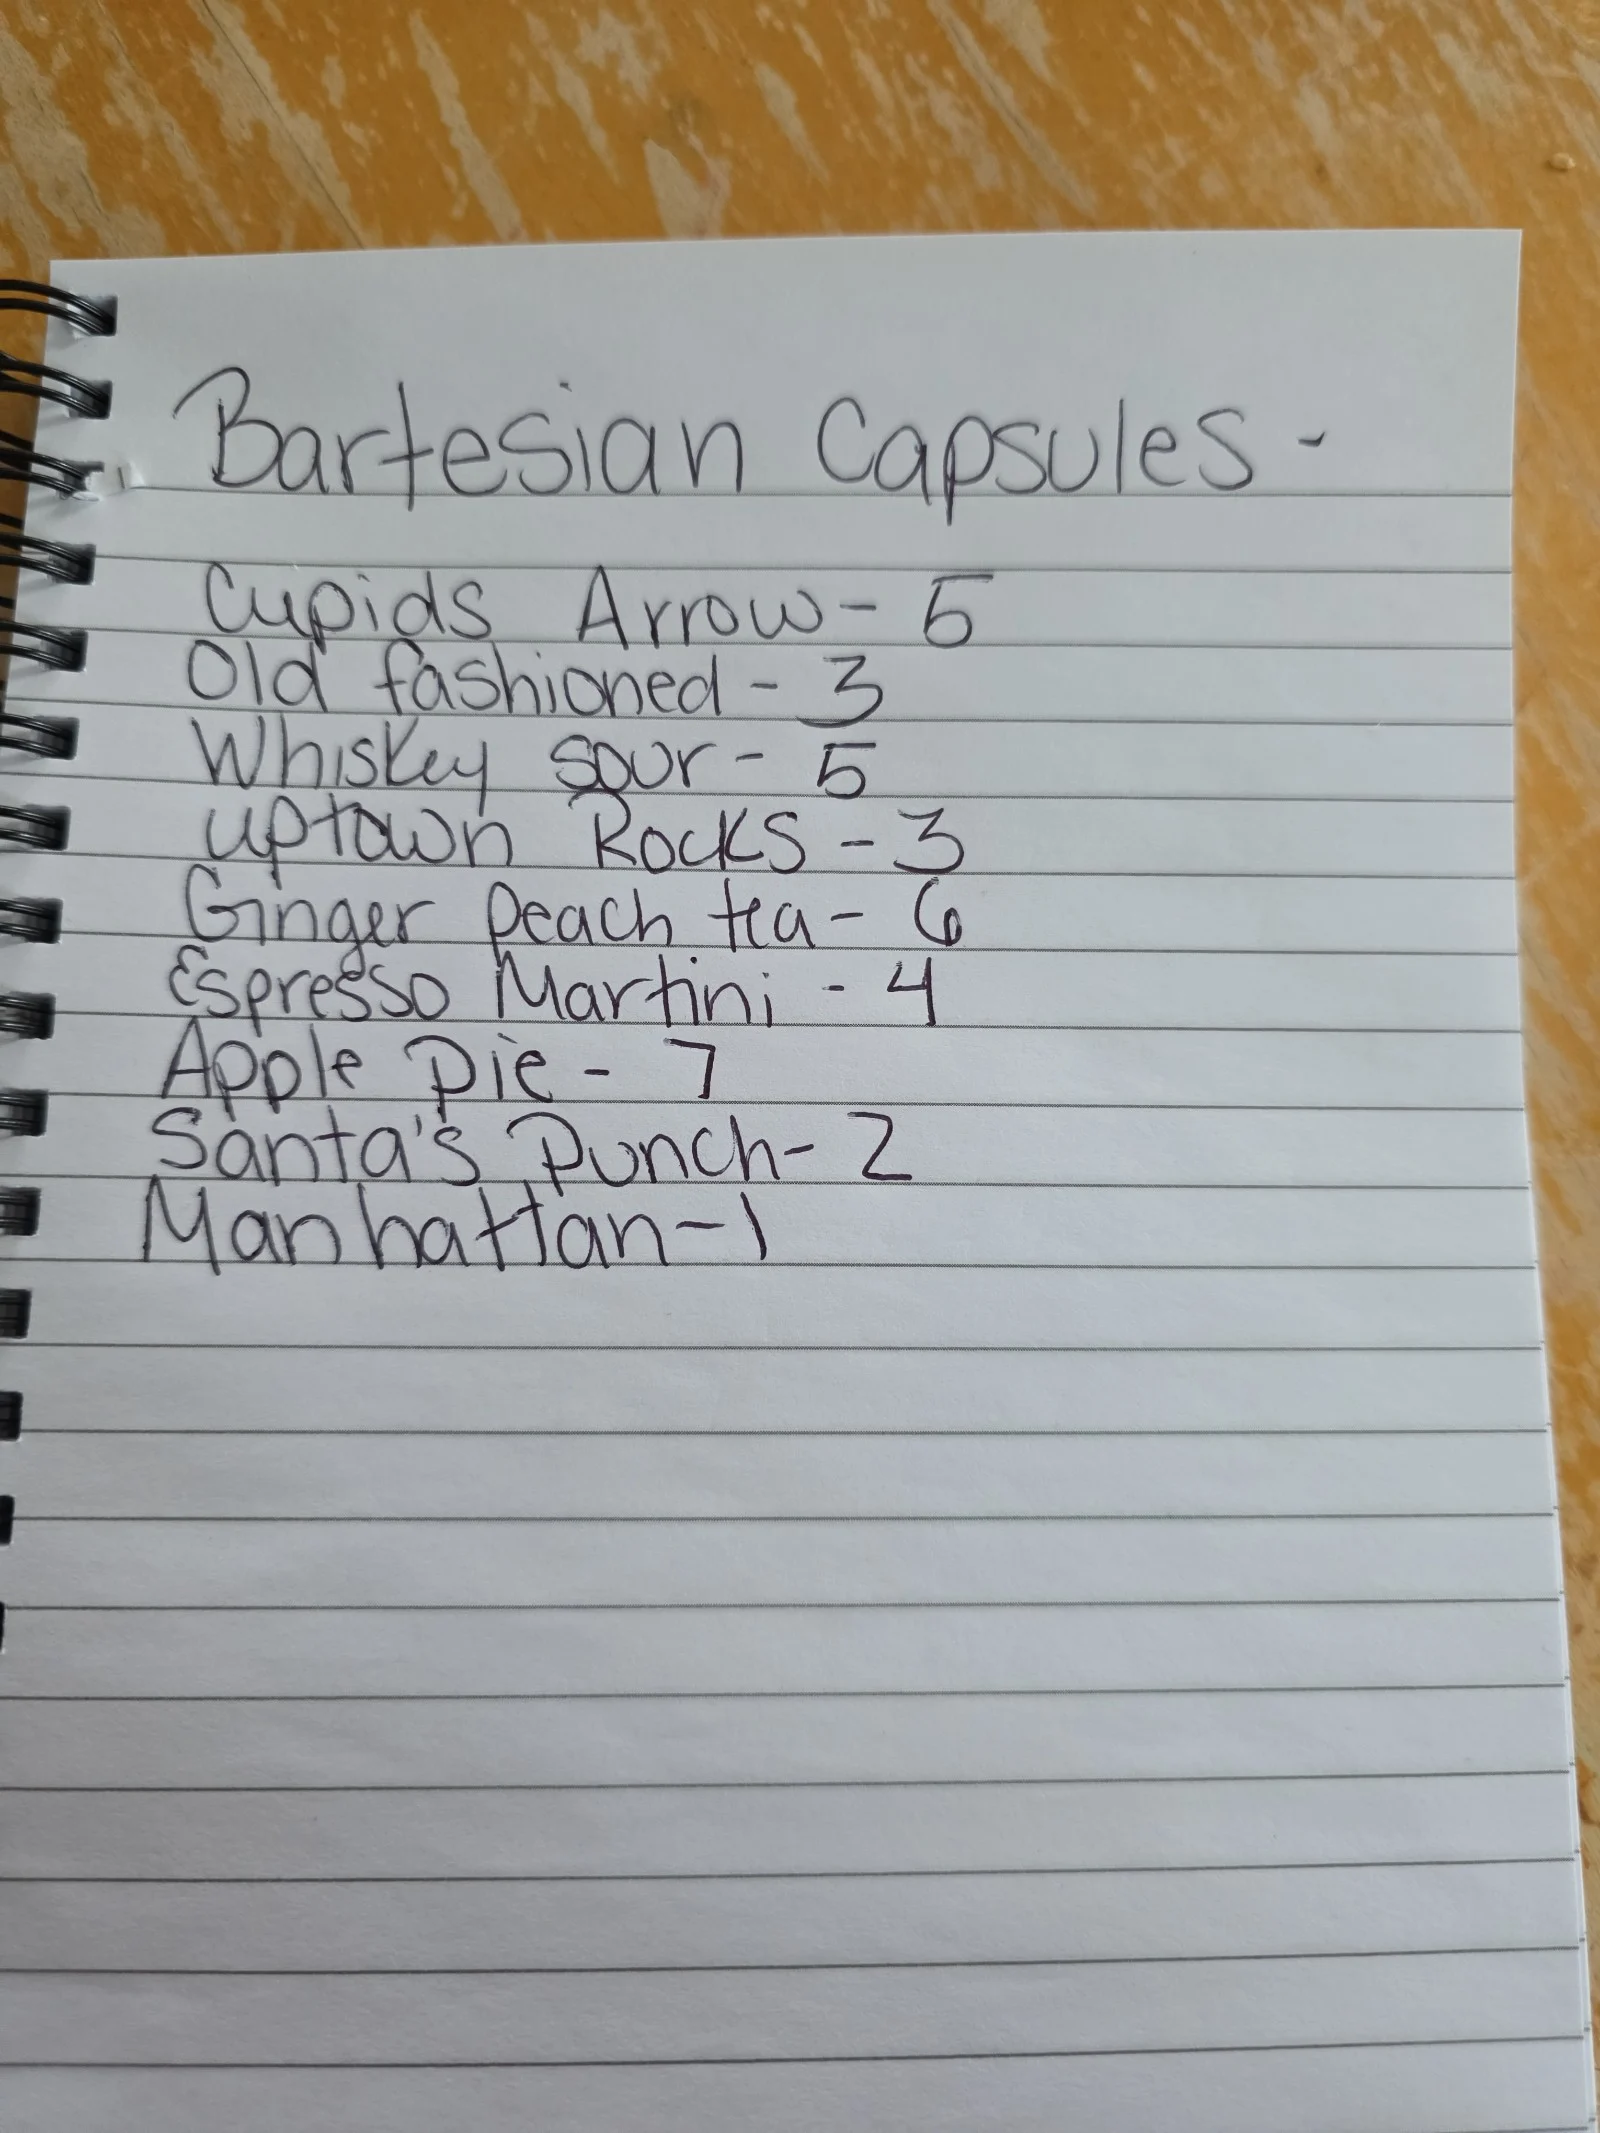 Bartesian Capsules -
Cupids Arrow - 5
Old fashioned - 3
Whiskey sour - 5
uptown Rocks - 3
Ginger peach tea - 6
Espresso Martini - 4
Apple pie - 7
Santa's Punch - 2
Manhattan - 1